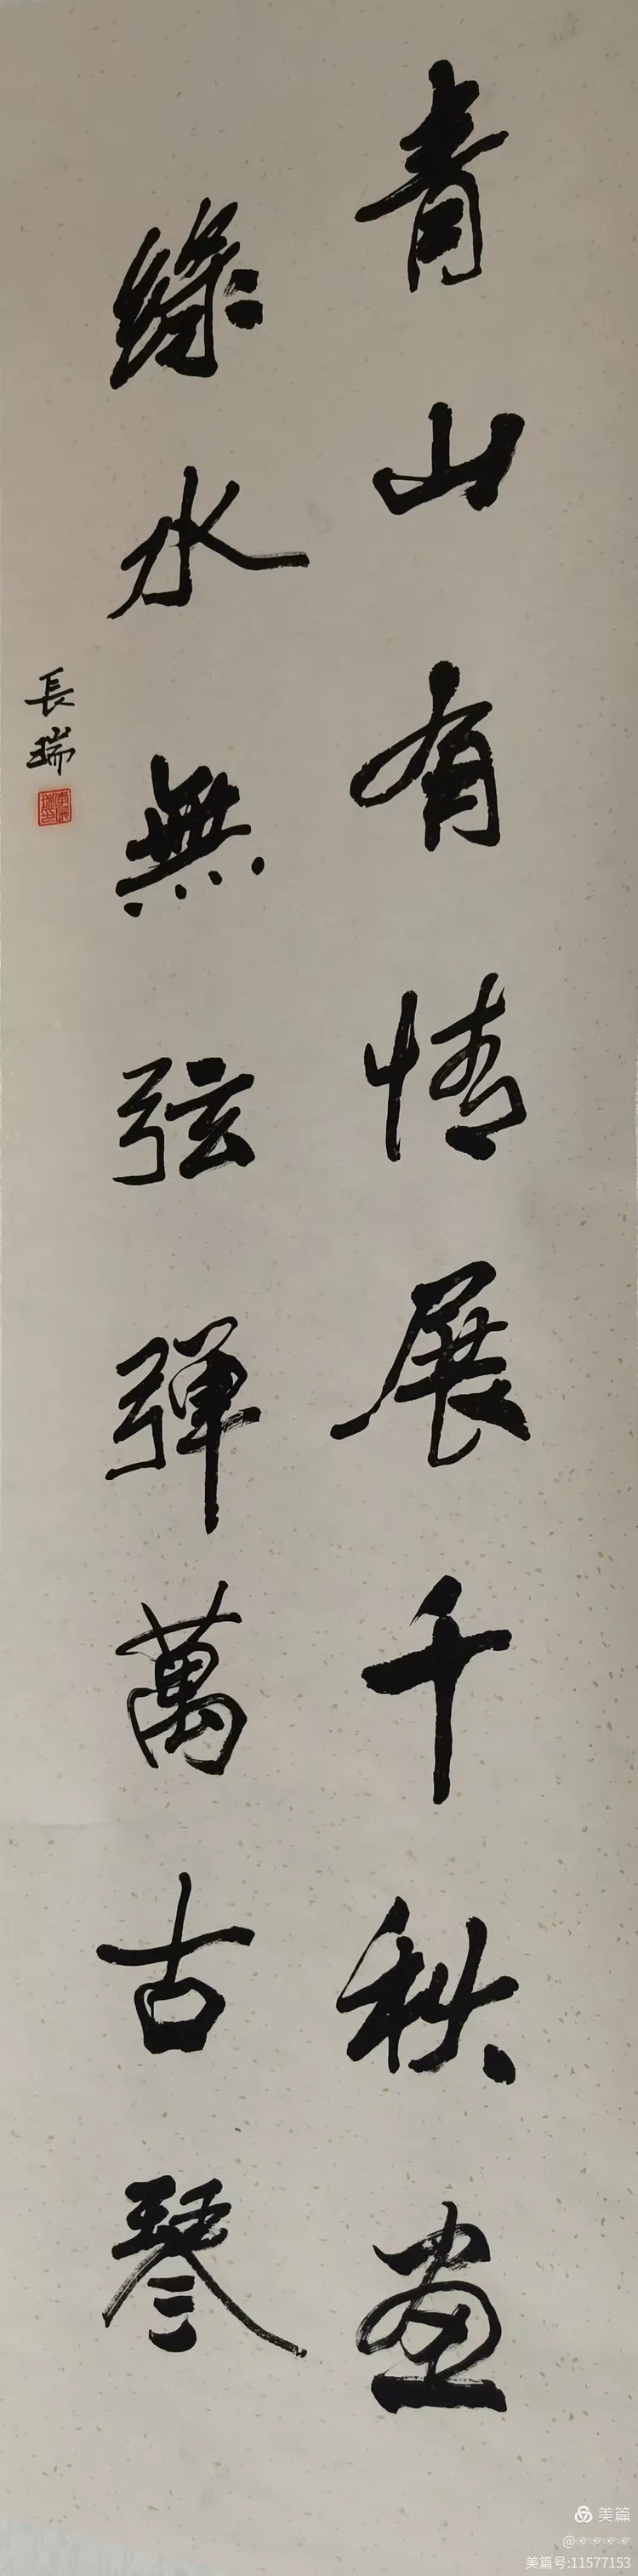 青山有情展千秋畫
綠水無弦弹萬古琴
長瑞
美篇
美篇号:11577153